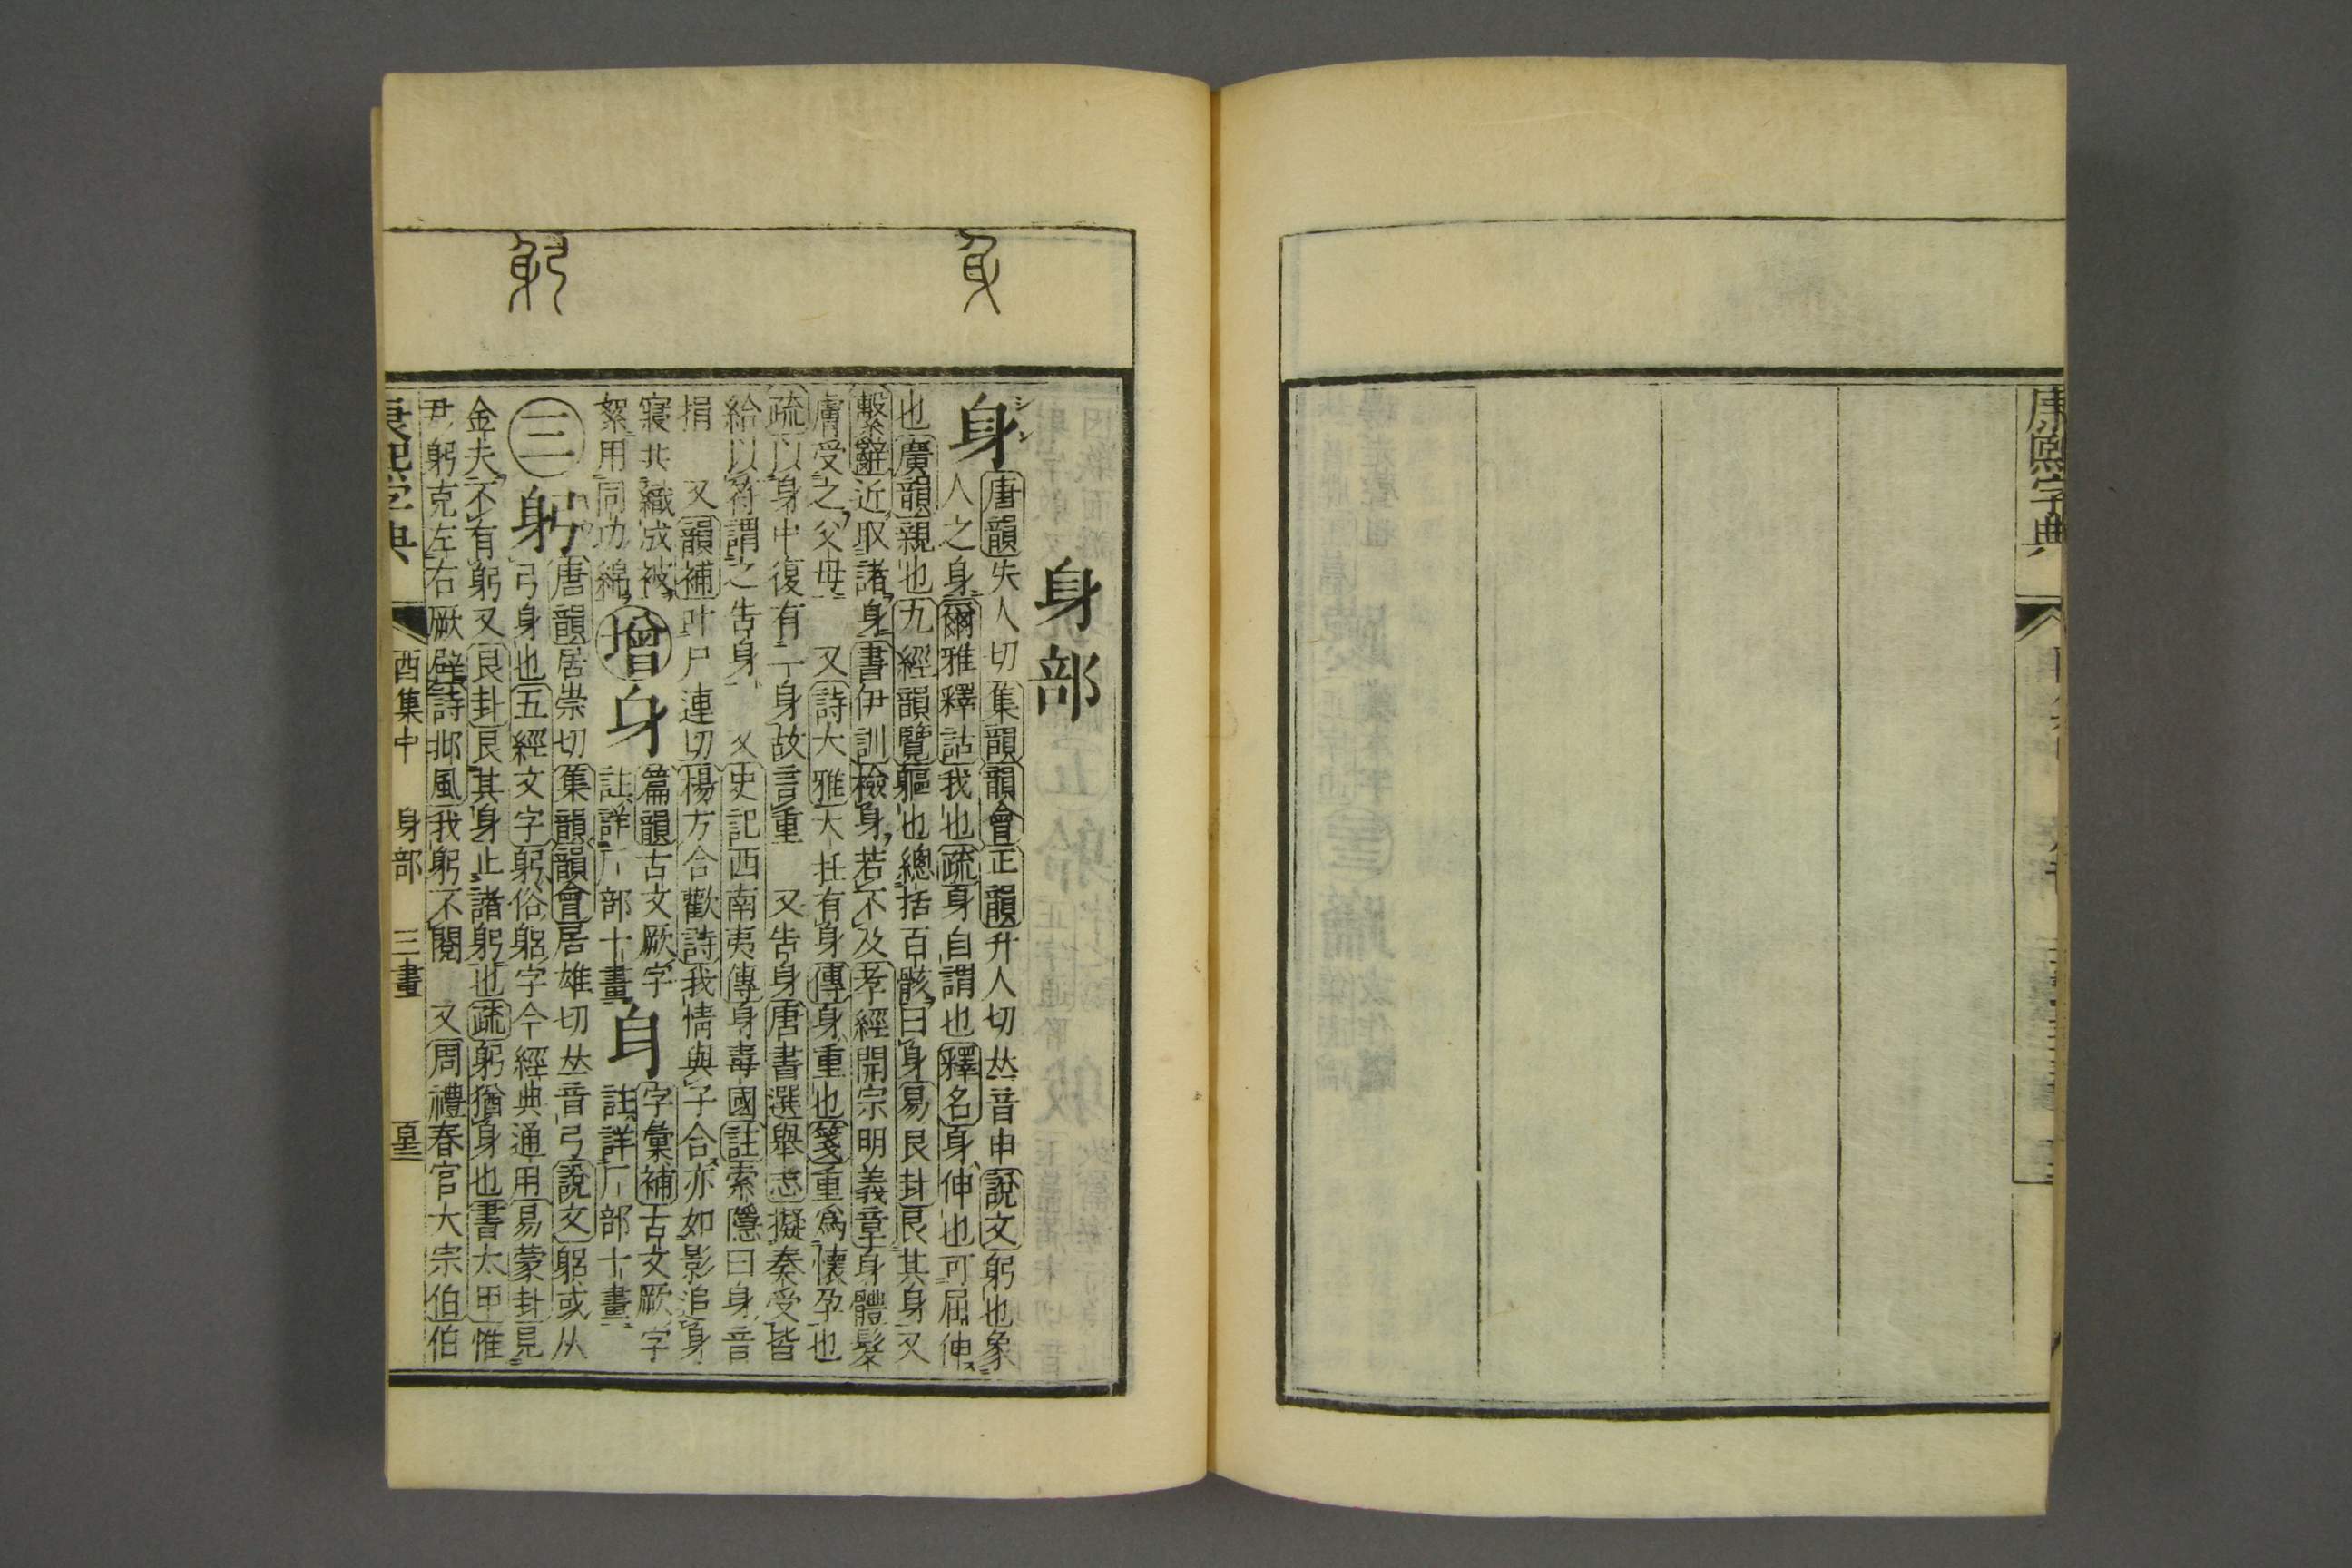 康熙字典
身部
身
シン
唐韻失人切集韻韻會正韻升人切𠀤音申說文躬也象
人之身爾雅釋詁我也疏身自謂也釋名身伸也可屈伸
也廣韻親也九經韻覽軀也總括百骸曰身易艮卦艮其身又
繫辭近取諸身書伊訓檢身若不及孝經開宗明義章身體髮
膚受之父母 又詩大雅大任有身傳身重也箋重爲懷孕也
疏以身中復有一身故言重 又告身唐書選舉志擬奏受皆
給以符謂之告身 又史記西南夷傳身毒國註索隱曰身音
捐 又韻補叶尸連切楊方合歡詩我情與子合亦如影追身
寢共織成被
絮用同功綿
增
身
篇韻古文厥字
註詳厂部十畫
身
字彙補古文厥字
註詳厂部十畫
三
躬
唐韻居崇切集韻韻會居雄切𠀤音弓說文躳或从
弓身也五經文字躬俗躳字今經典通用易蒙卦見
金夫不有躬又艮卦艮其身止諸躬也疏躬猶身也書太甲惟
尹躬克左右厥辟詩邶風我躬不閱 又周禮春官大宗伯伯
康熙字典
酉集中 身部 三畫